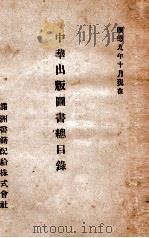 康德九年十月現在
中華出版圖書總目錄
滿洲書籍配給株式會社